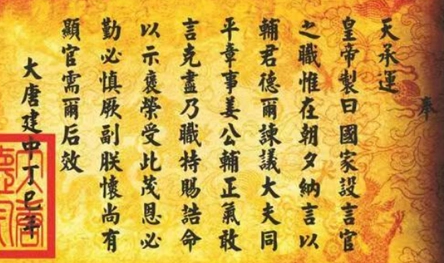 奉
天承運
皇帝製曰國家設言官
之職惟在朝夕納言以
輔君德爾諫議大夫同
平章事姜公輔正氣敢
言克盡乃職特賜誥命
以示褒榮受此茂恩必
勤必慎厥副朕懷尚有
顯官需爾后效
大唐建中丁巳年